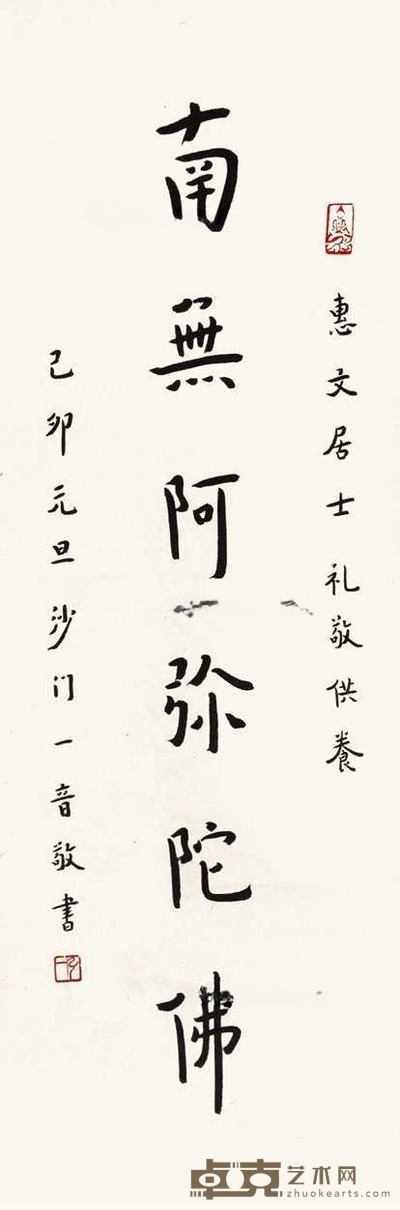 惠文居士礼敬供養
南無阿弥陀佛
己卯元旦沙门一音敬書
卓克艺术网
zhuokearts.com